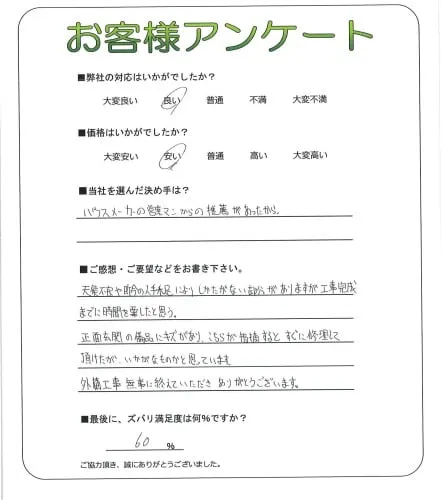 お客様アンケート
■弊社の対応はいかがでしたか？
大変良い 良い 普通 不満 大変不満
■価格はいかがでしたか？
大変安い 安い 普通 高い 大変高い
■当社を選んだ決め手は？
ハウスメーカーの営業マンからの推薦があったから。
■ご感想・ご要望などをお書き下さい。
天候不良や昨今の人手不足によりしかたがない部分がありますが工事完成
までに時間を要したと思う。
正面玄関の備品にキズがあり、こちらが指摘するとすぐに修理して
頂けたが、いかがなものかと思っています
外構工事 無事に終えていただき ありがとうございます。
■最後に、ズバリ満足度は何％ですか？
60 ％
ご協力頂き、誠にありがとうございました。